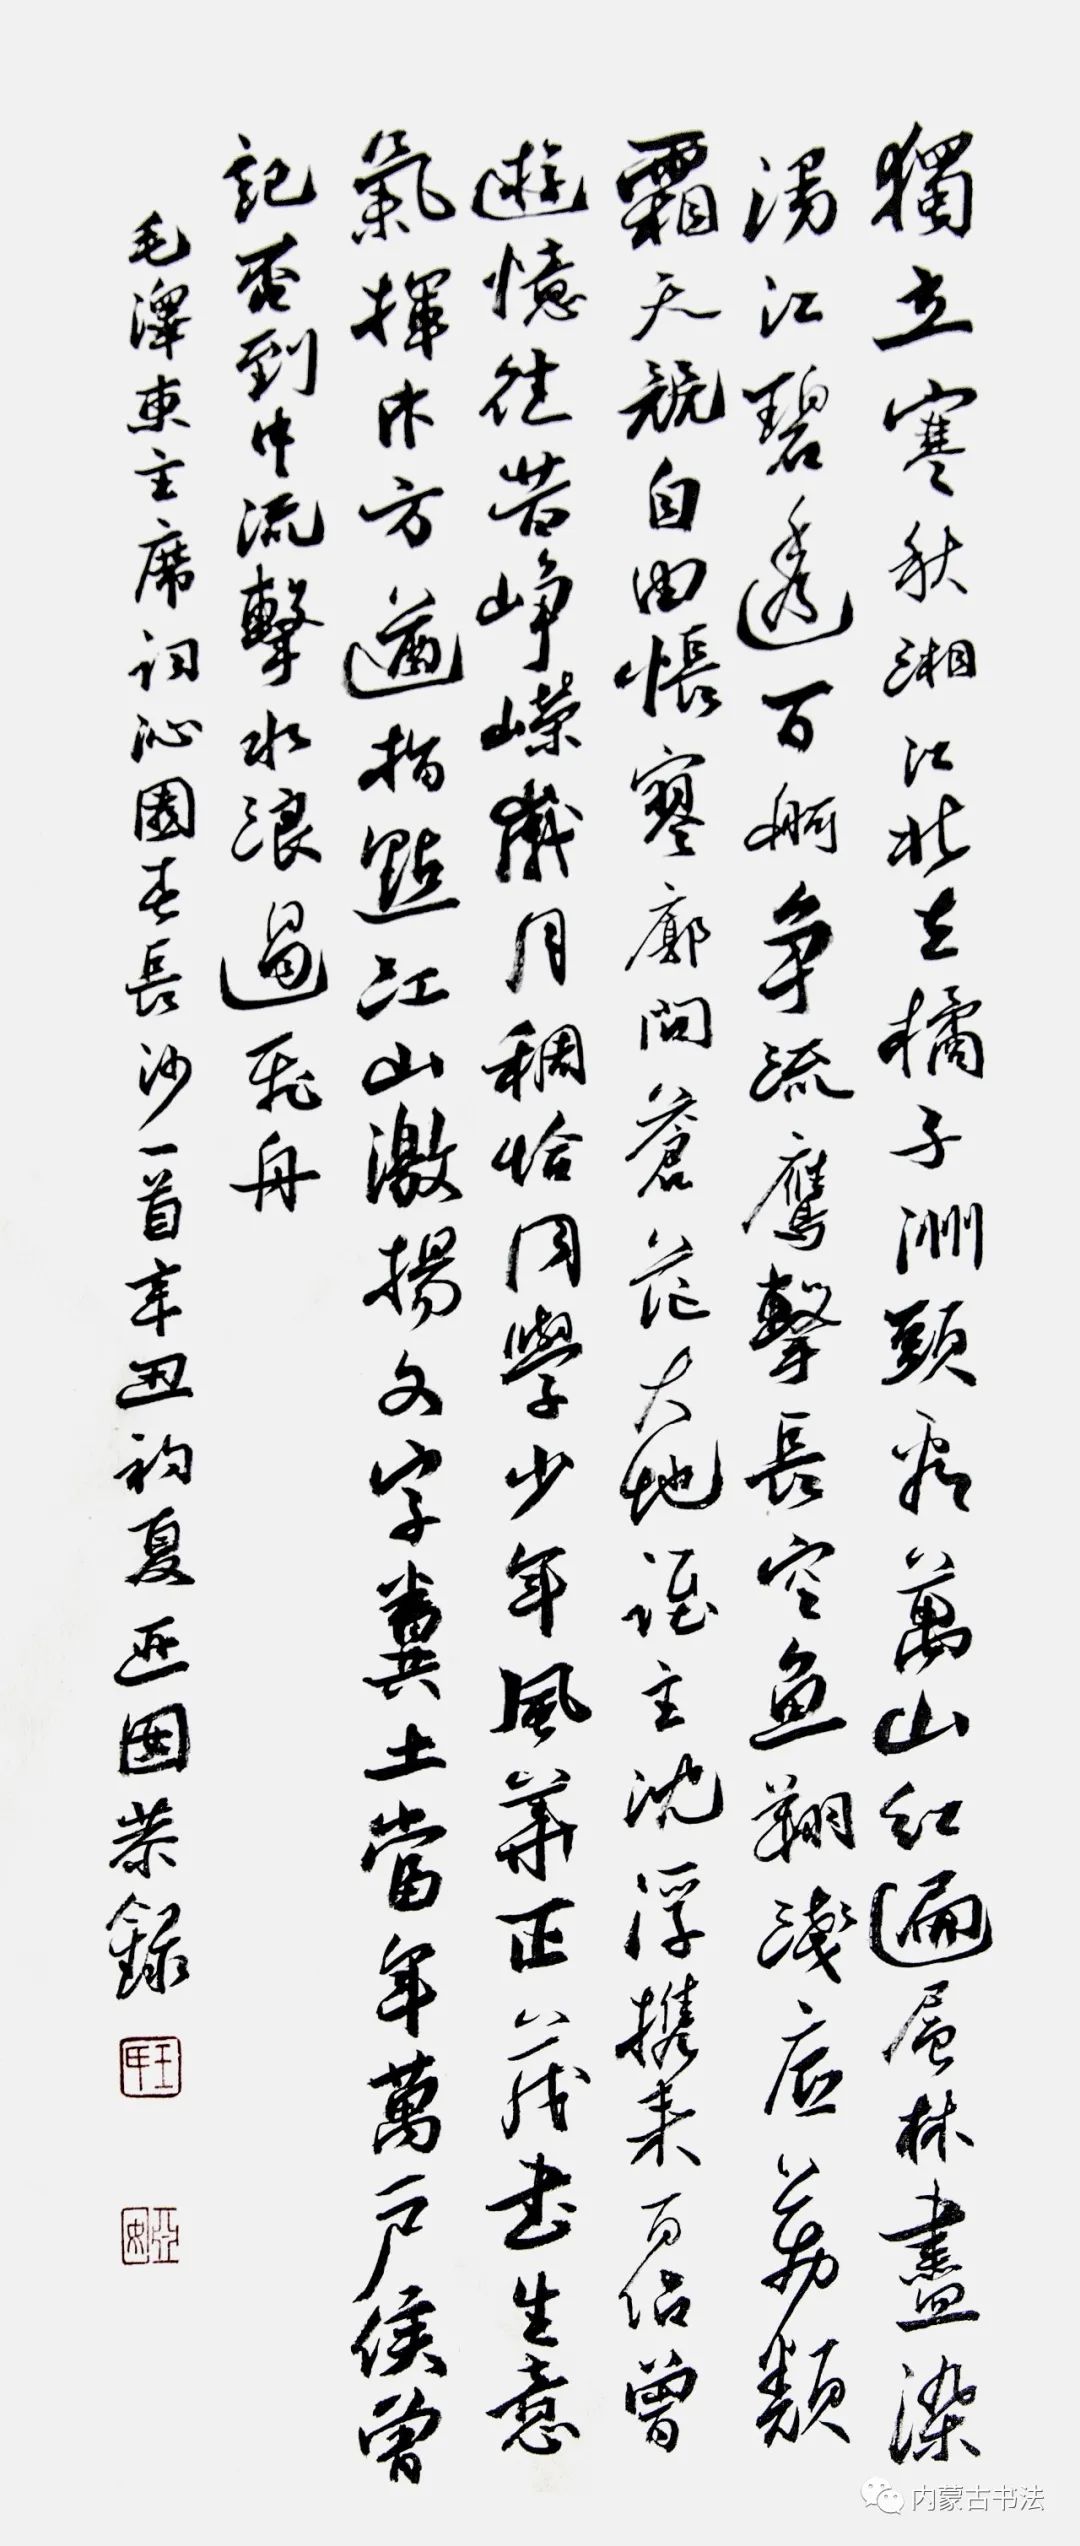 獨立寒秋湘江北去橘子洲頭看萬山红遍層林盡染
漫江碧透百舸争流鷹擊長空魚翔淺底萬類
霜天競自由悵寥廓問蒼茫大地誰主沈浮携来百侣曾
遊憶往昔峥嶸歲月稠恰同學少年風華正茂書生意
氣揮斥方遒指點江山激揚文字糞土當年萬户侯曾
記否到中流擊水浪遏飛舟
毛澤東主席词沁園春長沙一首辛丑初夏亚囡恭錄
内蒙古书法